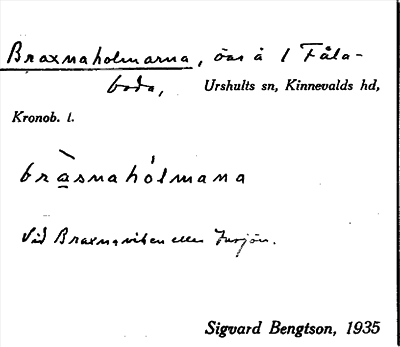 Braxnaholmarna, öar å 1 Fåla-
boda, Urshults sn, Kinnevalds hd,
Kronob. l.
bràsnahólmana
Vid Braxnaviken eller
Sigvard Bengtson, 1935